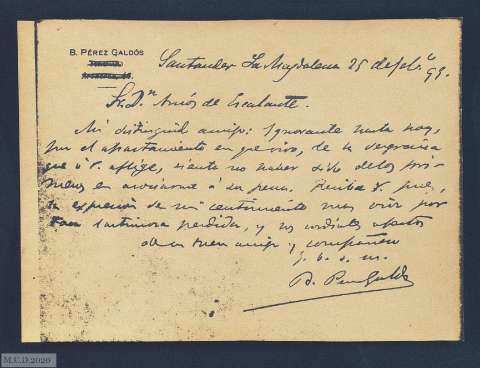 B. PÉREZ GALDÓS
Santander La Magdalena 25 de feb.º 93.
Sr. Dn Amós de Escalante.
Mi distinguido amigo: Ignorante hasta hoy,
por el apartamiento en que vivo, de la desgracia
que á V. aflige, siento no haber sido de los pri-
meros en asociarme á su pena. Reciba V. pues,
la expresión de mi sentimiento mas vivo por
tan lastimosa perdida, y los cordiales afectos
de su buen amigo y compañero
q. b. s. m.
B. Perez Galdós
M.C.D. 2020